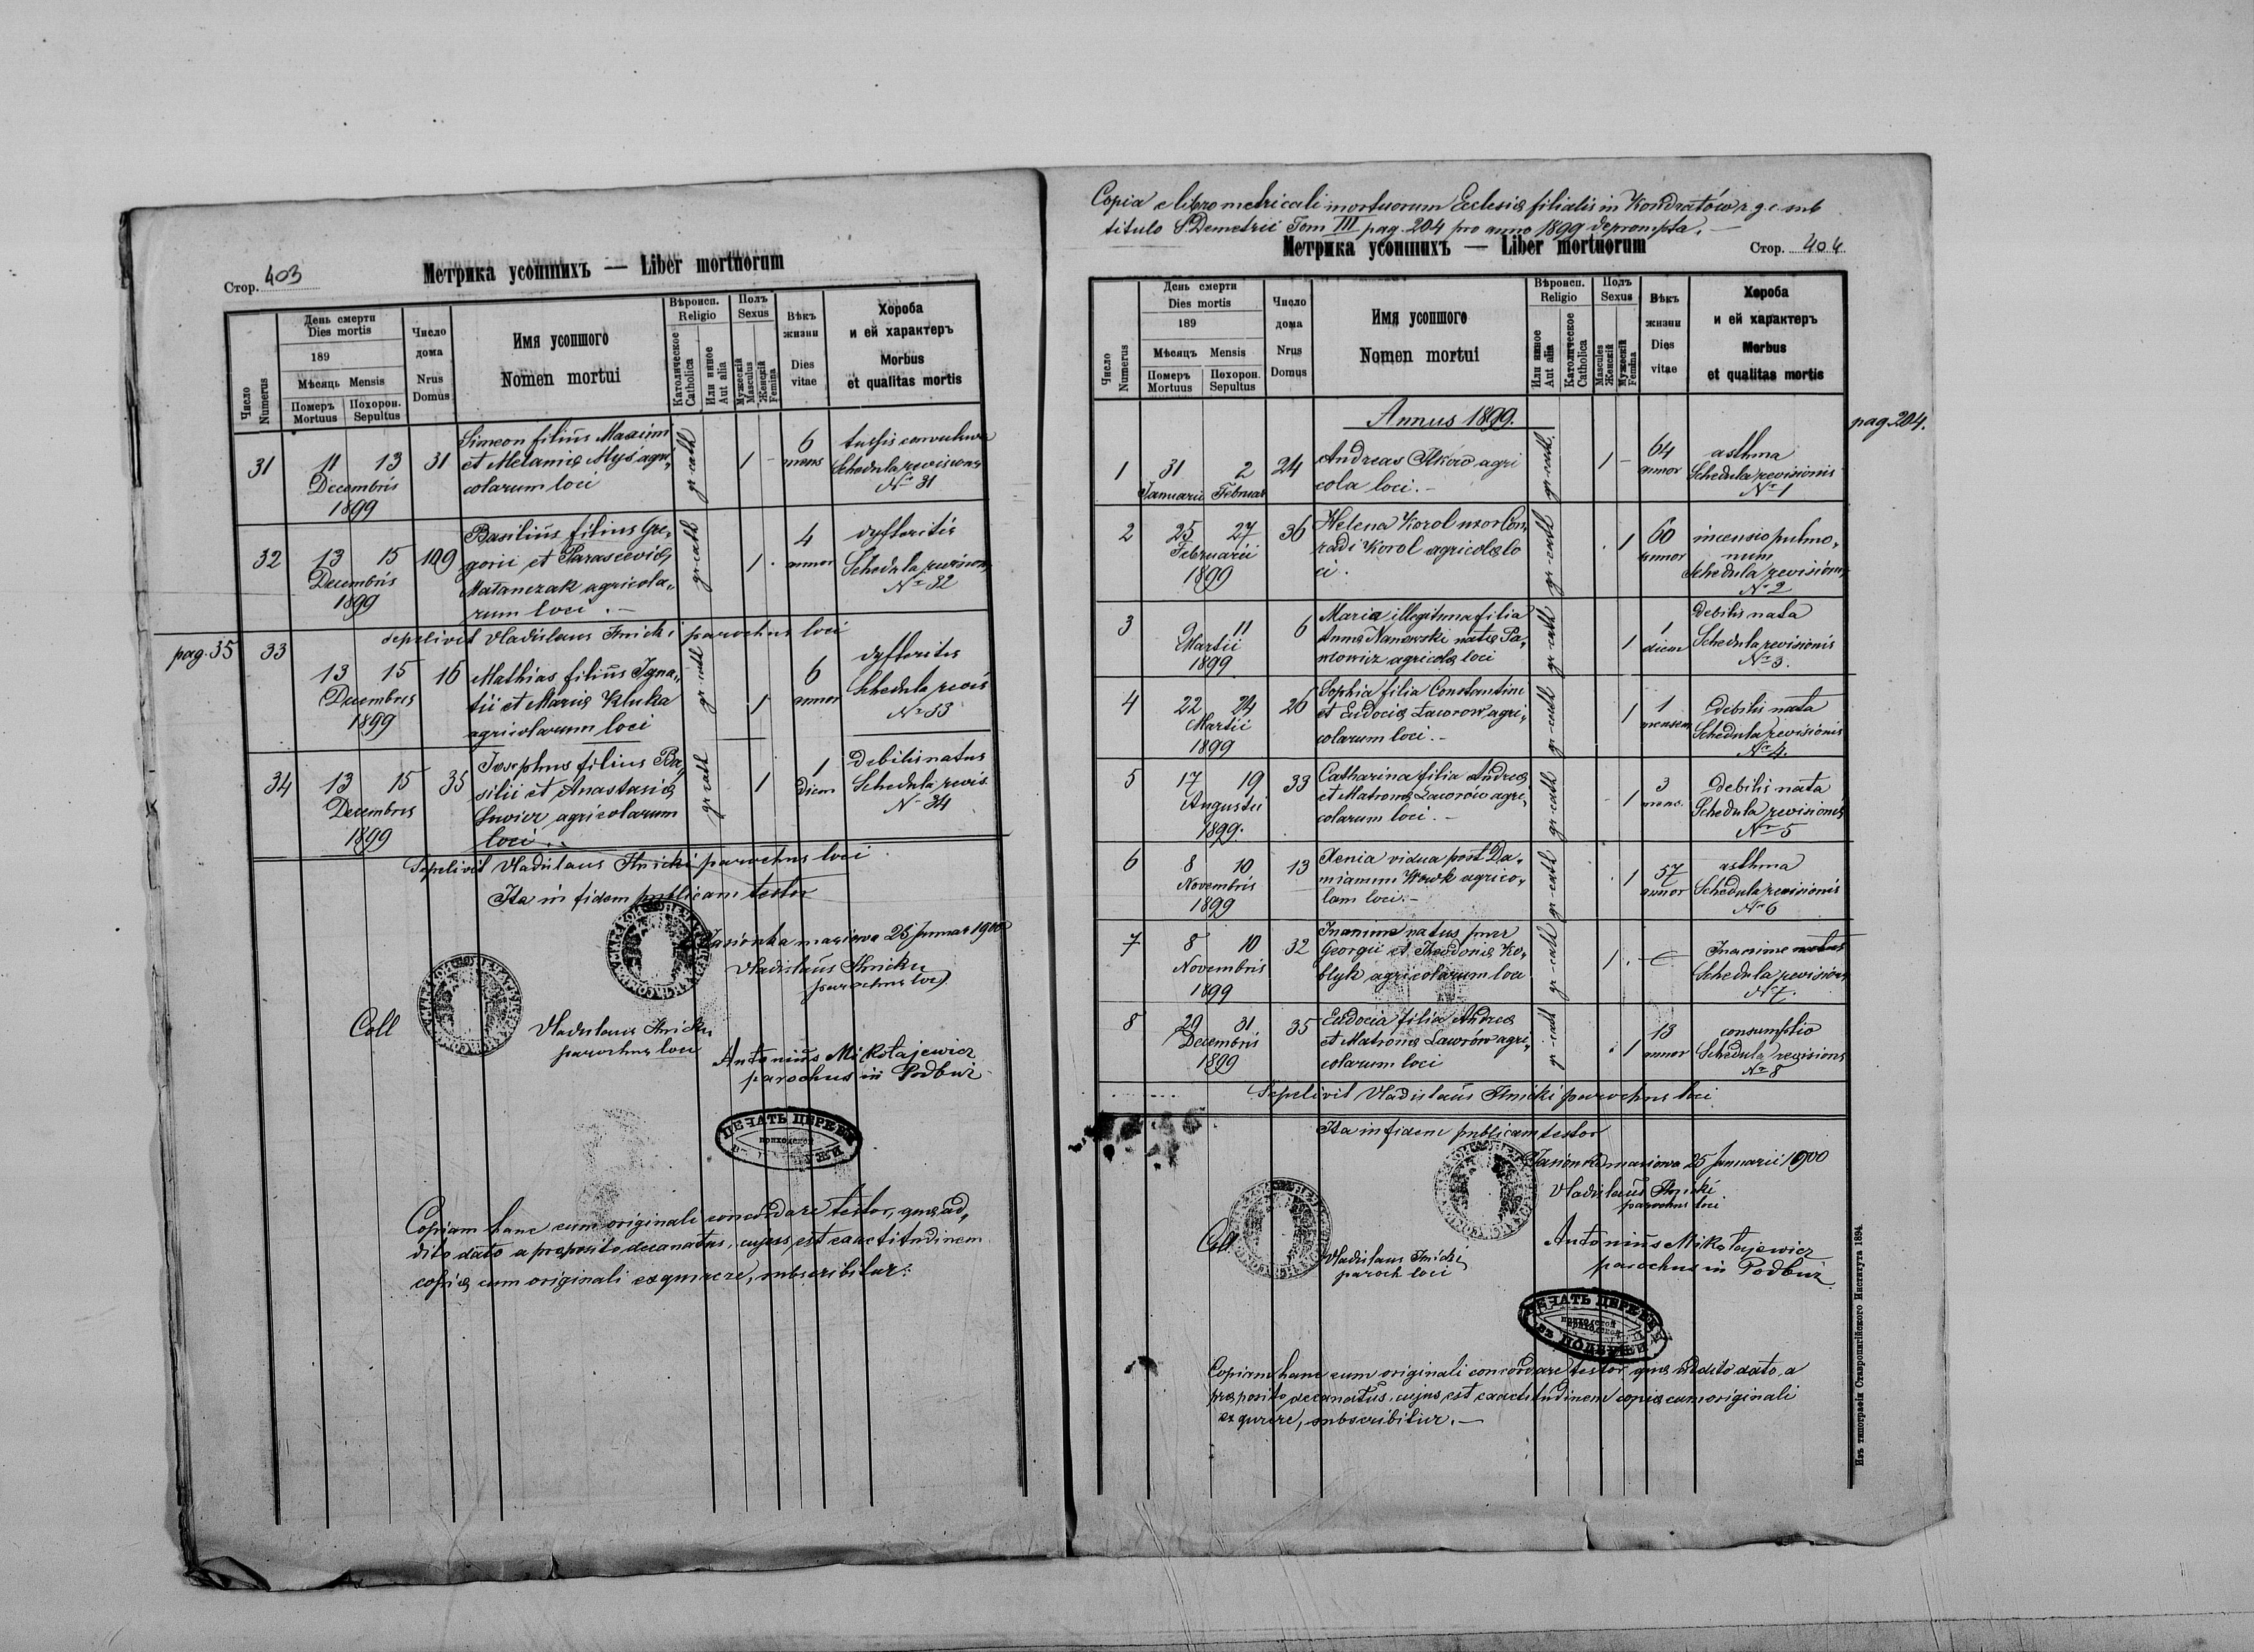 Стор. 403
Метрика усопшихъ — Liber mortuorum
Число Numerus
День смерти
Dies mortis
189
Мѣсяць Mensis
Померъ Mortuus
Похорон. Sepultus
Число дома
Nrus Domus
Имя усопшого
Nomen mortui
Вѣроисп.
Religio
Католическое Catholica
Или инное Aut alia
Полъ
Sexus
Мужескій Masculus
Женскій Femina
Вѣкъ жизни
Dies vitae
Хороба
и ей характеръ
Morbus
et qualitas mortis
31 11 13 Decembris 1899 31
Simeon filius Maximi
et Melaniæ Myś agri,
colarum loci
gr-cath 1 - 6 mens
tussis convulsiva
Schedula revisionis
No 31
32 13 15 Decembris 1899 109
Basilius filius Gre,
gorii et Parasceviæ
Matanczak agricola,
rum loci . —
gr-cath 1 . 4 annor
dyfteritis
Schedula revision
No 32
sepelivit Vladislaus Ilnicki parochus loci
pag. 35
33 13 15 Decembres 1899 16
Mathias filius Igna,
tii et Mariæ Kluka
agricolarum loci
gr-cath 1 6 annor
dyfteritis
Schedula revis
No 33
34 13 15 Decembres 1899 35
Josephus filius Ba,
silii et Anastasiæ
agricolarum
loci . .
gr cath 1 1 diem
debilis natus
Schedula revis.
No 34
Sepelivit Vladislaus Ilnicki parochus loci
Ita in fidem publicam testor
Jasionka masiowa 25 Januar 1900
Vladislaus Ilnicki
parochus loci
Coll
Vladislaus Ilnicki
parochus loci
Antonius Mikołajewicz
parochus in Podbuż
ПЕЧАТЬ ЦЕРКВИ
приходской
Copiam hanc cum originali concordare testor, quæ ad,
dito dato a præposito decanatus, cujus est exactitudinem
copiæ cum originali exquirere, subscribitur:
Copia e libro metricali mortuorum Ecclesiæ filialis in Kondratów r. g. c. sub
titulo S. Demetrii Tom III pag. 204 pro anno 1899 deprompta. —
Метрика усопшихъ — Liber mortuorum
Стор. 404
Число Numerus
День смерти
Dies mortis
189
Мѣсяць Mensis
Померъ Mortuus
Похорон. Sepultus
Число дома
Nrus Domus
Имя усопшого
Nomen mortui
Вѣроисп.
Religio
Или инное Aut alia
Католическое Catholica
Полъ
Sexus
Masculus Женскій
Мужескій Femina
Вѣкъ жизни
Dies vitae
Хороба
и ей характеръ
Morbus
et qualitas mortis
Annus 1899.
pag. 204.
1 31 Januarii 2 Februar 24
Andreas Ilków agri
cola loci. —
gr-cath. 1 - 64 annor
asthma
Schedula revisionis
No 1
2 25 27 Februarii 1899 36
Helena Korol uxor Con,
radi Korol agricolæ lo
ci .
gr-cath . 1 60 annor
incensio pulmo,
num
Schedula revisionis
No 2
3 9 11 Martii 1899 6
Maria illegitima filia
Annæ Nanowski natæ Pa,
wlowicz agricolæ loci
gr-cath 1 1 diem
debilis nata
Schedula revisionis
No 3.
4 22 24 Martii 1899 26
Sophia filia Constantini
et Eudociæ Ławrow agri,
colarum loci. —
gr-cath 1 1 mensem
debilis nata
Schedula revisionis
No 4.
5 17 19 Augusti 1899. 33
Catharina filia Andreæ
et Matronæ Ławrów agri,
colarum loci. —
gr-cath - 1 3 mens.
debilis nata
Schedula revisionis
No 5
6 8 10 Novembris 1899 13
Xenia vidua post Da,
mianum Wowk agrico,
lam loci. —
gr-cath . 1 57 annor
asthma
Schedula revisionis
No 6
7 8 10 Novembris 1899 32
Inanime natus puer
Georgii et Theodoniæ Ko,
blyk agricolarum loci
gr-cath 1 .
Inanime natus
Schedula revisionis
No 7.
8 29 31 Decembris 1899 35
Eudocia filia Andreæ
et Matronæ Ławrów agri,
colarum loci
gr-cath . 1 13 annor
consumptio
Schedula revisionis
No 8
Sepelivit Vladislaus Ilnicki parochus loci
Ita in fidem publicam testor
Jasionka masiowa 25 Januarii 1900
Vladislaus Ilnicki
parochus loci
Coll
Vladislaus Ilnicki
paroch loci
Antonius Mikołajewicz
parochus in Podbuż
ПЕЧАТЬ ЦЕРКВИ
приходской
Copiam hanc cum originali concordare testor, quæ addito dato, a
præposito decanatus, cujus est exactitudinem copiæ cum originali
exquirere, subscribitur. —
Изъ типографіи Ставропигійского Института 1894.